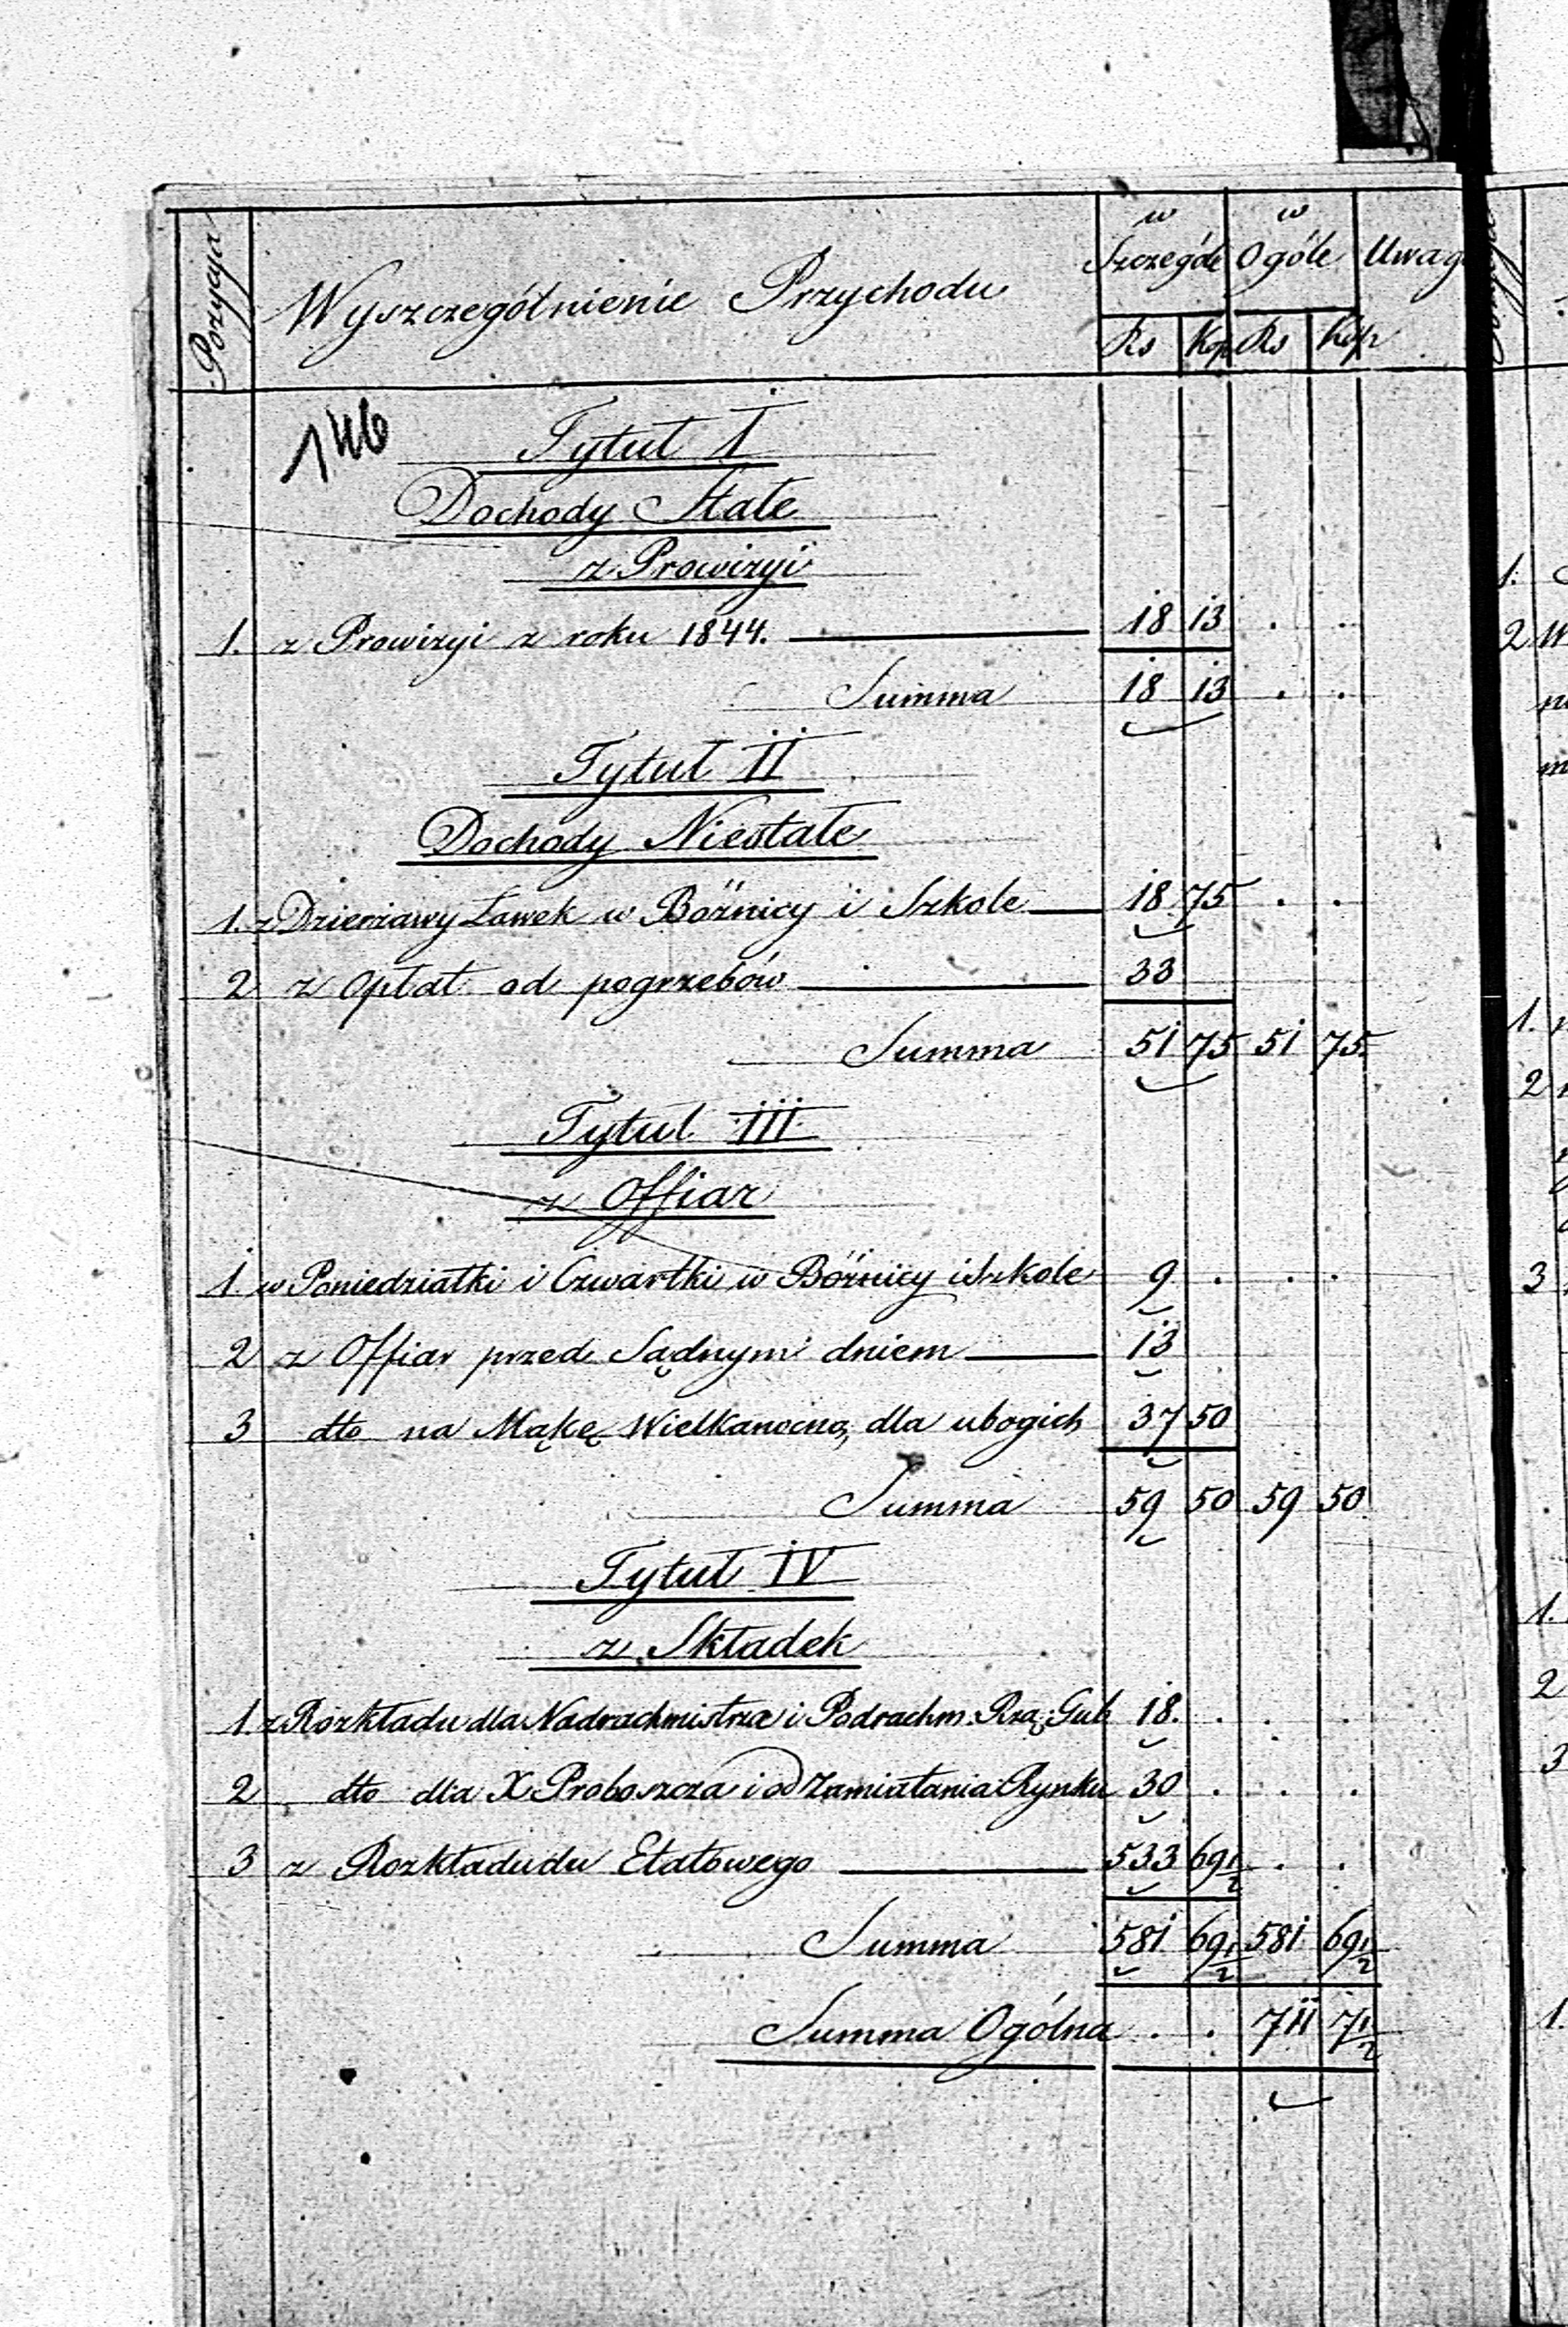 Pozycya | Wyszczególnienie Przychodu | w Szczególe | w Ogóle | Uwag
Rs | Kop | Rs | Kop
146
Tytuł I
Dochody Stałe
z Prowizyi
1. z Prowizyi z roku 1844. 18 13 . .
Summa 18 13 . .
Tytuł II
Dochody Niestałe
1. z Dzierżawy Ławek w Bóżnicy i Szkole 18 75 . .
2 z Opłat od pogrzebów 33
Summa 51 75 51 75.
Tytuł III
z Offiar
1 w Poniedziałki i Czwartki w Bóżnicy i Szkole 9 . . .
2 z Offiar przed Sądnym dniem 13
3 dto na Mąkę Wielkanocną dla ubogich 37 50
Summa 59 50 59 50
Tytuł IV
z Składek
1. z Rozkładu dla Nadrachmistrza i Podrachm. Rzą. Gub 18. . . .
2 dto dla X Proboszcza i od Zamiatania Rynku 30 . . .
3 z Rozkładudu Etatowego 533 69 1/2 . .
Summa 581 69 1/2 581 69 1/2
Summa Ogólna . . 711 7 1/2
1.
2 W
1.
2
3
1.
2
3
1.